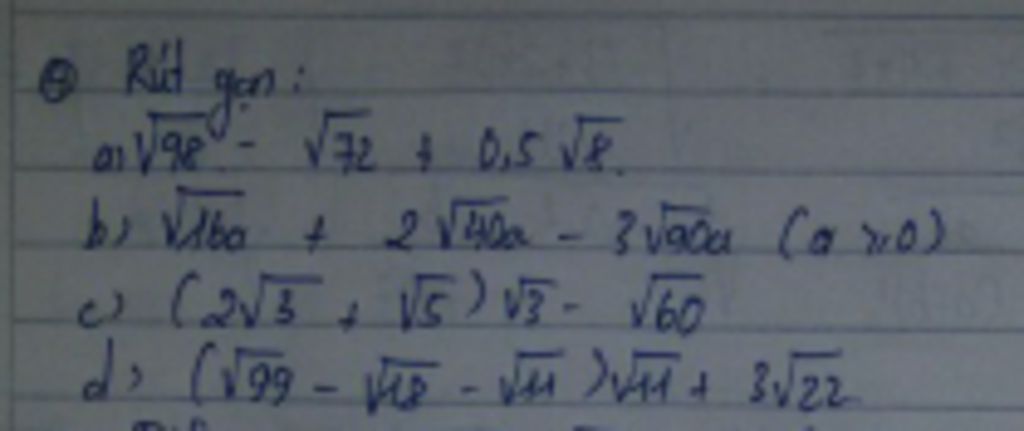 Rút gọn:
a, √98 - √72 + 0,5 √8.
b) √16a + 2√40a - 3√90a (a ≥ 0)
c) (2√3 + √5)√3 - √60
d) (√99 - √18 - √11)√11 + 3√22